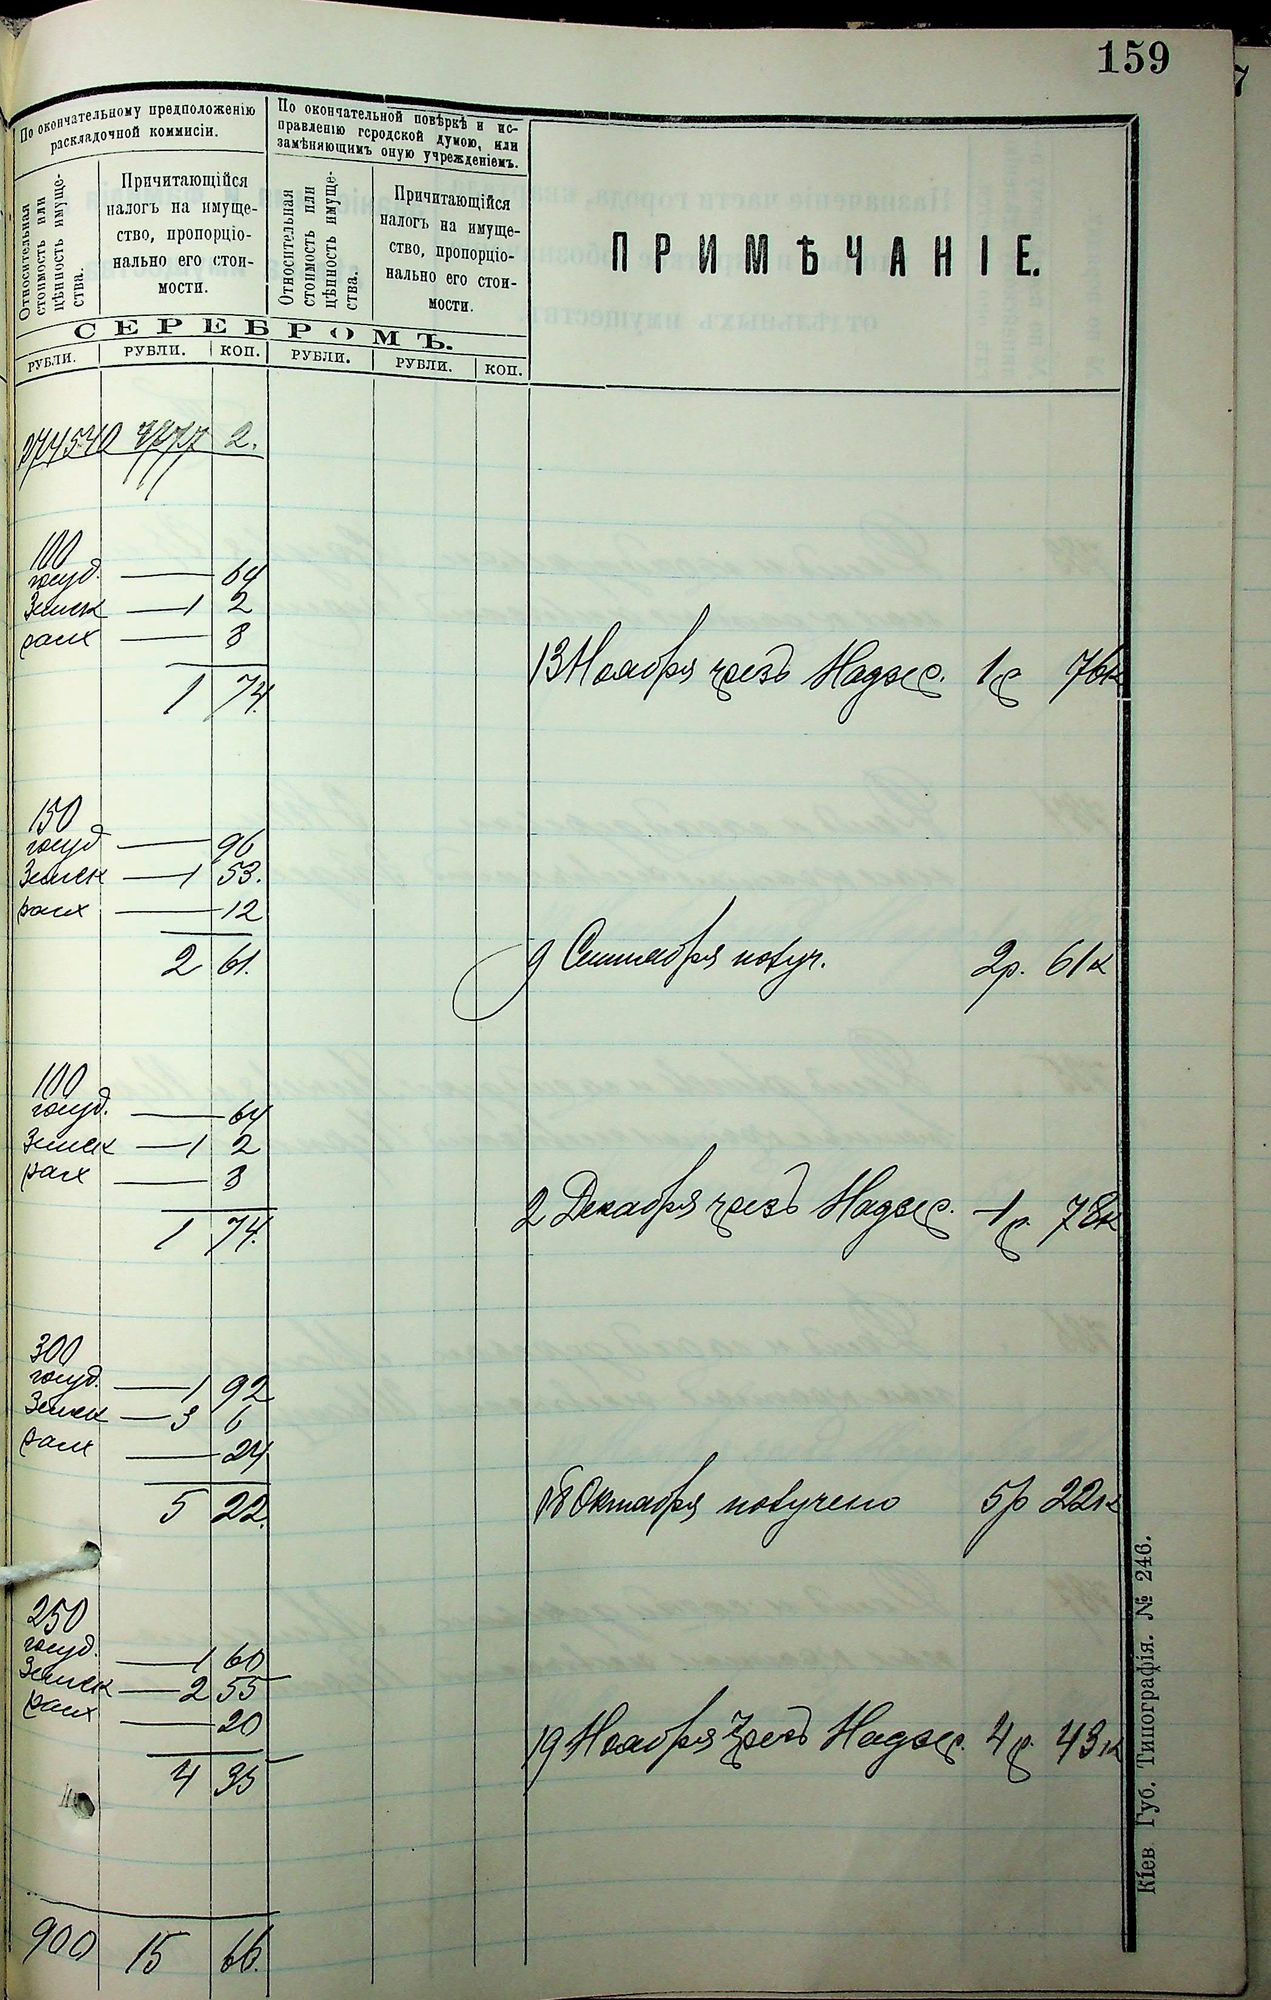 159
По окончательному предположенію
раскладочной коммисіи.
По окончательной повѣркѣ и ис-
правленію городской думою, или
замѣняющимъ оную учрежденіемъ.
Относительная
стоимость или
цѣнность имуще-
ства.
Причитающійся
налогъ на имуще-
ство, пропорціо-
нально его стои-
мости.
Относительная
стоимость или
цѣнность имуще-
ства.
Причитающійся
налогъ на имуще-
ство, пропорціо-
нально его стои-
мости.
ПРИМѢЧАНІЕ.
СЕРЕБРОМЪ.
РУБЛИ. РУБЛИ. КОП. РУБЛИ. РУБЛИ. КОП.
2.
100
госуд. — 64
Земск — 1 2
раск — 8
1 74.
13 Ноября чрезъ Надзер. 1р 76к
150
госуд — 96
Земск — 1 53.
раск — 12
2 61.
9 Сентября получ. 2р. 61к
100
госуд. — 64
Земск — 1 2
раск — 8
1 74.
2 Декабря чрезъ Надзер. 1р. 78к
300
госуд. — 1 92
Земск — 3 6
раск — 24
5 22.
18 Октября получено 5р 22к
250
госуд. — 1 60
Земск — 2 55
раск — 20
4 35
19 Ноября чрезъ Надзер. 4р. 43к
900 15 66.
Кіев Губ. Типографія. № 246.